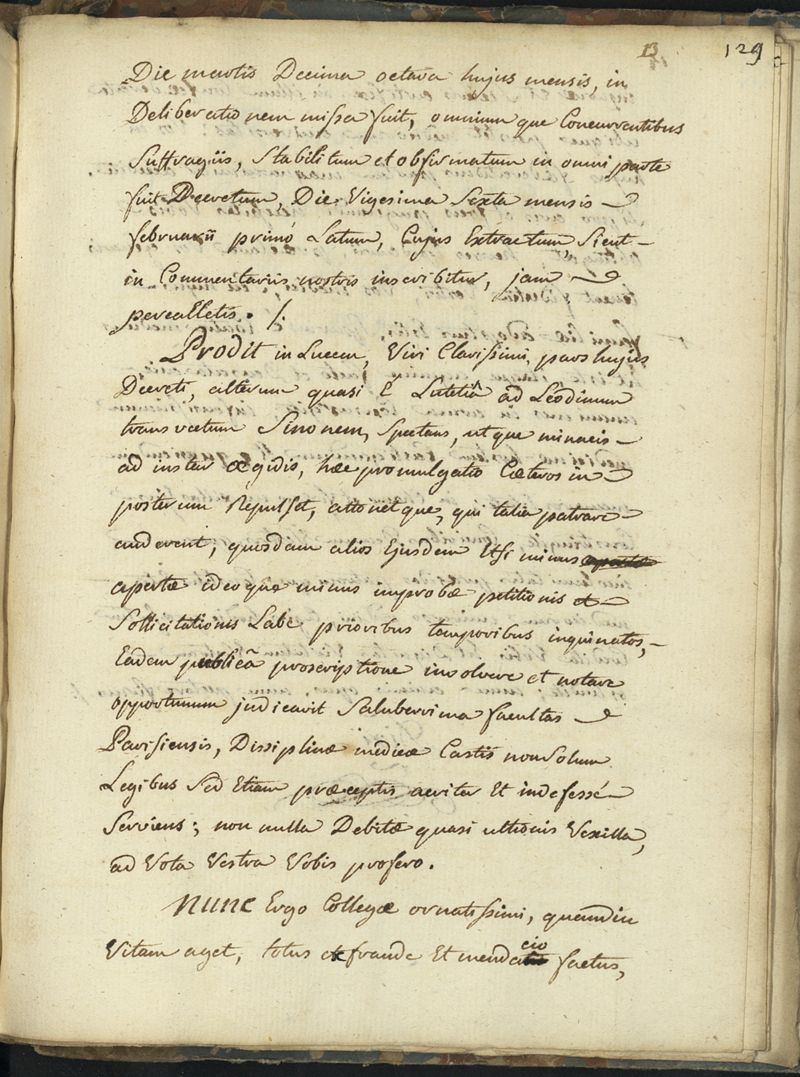 13 129
Die martis Decima octava hujus mensis, in
Deliberationem missa fuit, omnium que Concurrentibus
Suffragiis, Stabilitum et obfirmatum in omni parte
fuit Decretum, Die Vigesima Sexta mensis
februarii primó Latum, Cujus Extractum, Sicut
in Commentariis nostris inscribitur, jam
percalletis. /.
Prodit in Lucem, Viri Clarissimi, pars hujus
Decreti, alterum quasi é Lutetiâ ad Leodinum
transvectum Sinonem, Spectans, ut que minacis
ad instar Ægidis, hæc promulgatio Cæteros in
posterum Repulset, attonet que, qui talia patrare
auderent; quosdam alios Ejusdem Etsi minus
apertæ ideoque minus improbæ petitionis et
Sollicitationis Labe prioribus temporibus inquinatos,
Eadem publicâ proscriptione involvere et notare
opportunum judicavit Saluberrima facultas
Parisiensis, Dissiplinæ medicæ Castis non Solum
Legibus Sed Etiam præceptis acriter Et indefessé
Serviens; non nulla Debitæ quasi ultionis Vexilla,
ad Vota Vestra Vobis profero.
NUNC Ergo Collegæ ornatissimi, quamdiu
Vitam aget, totus ex fraude Et mendacio factus,